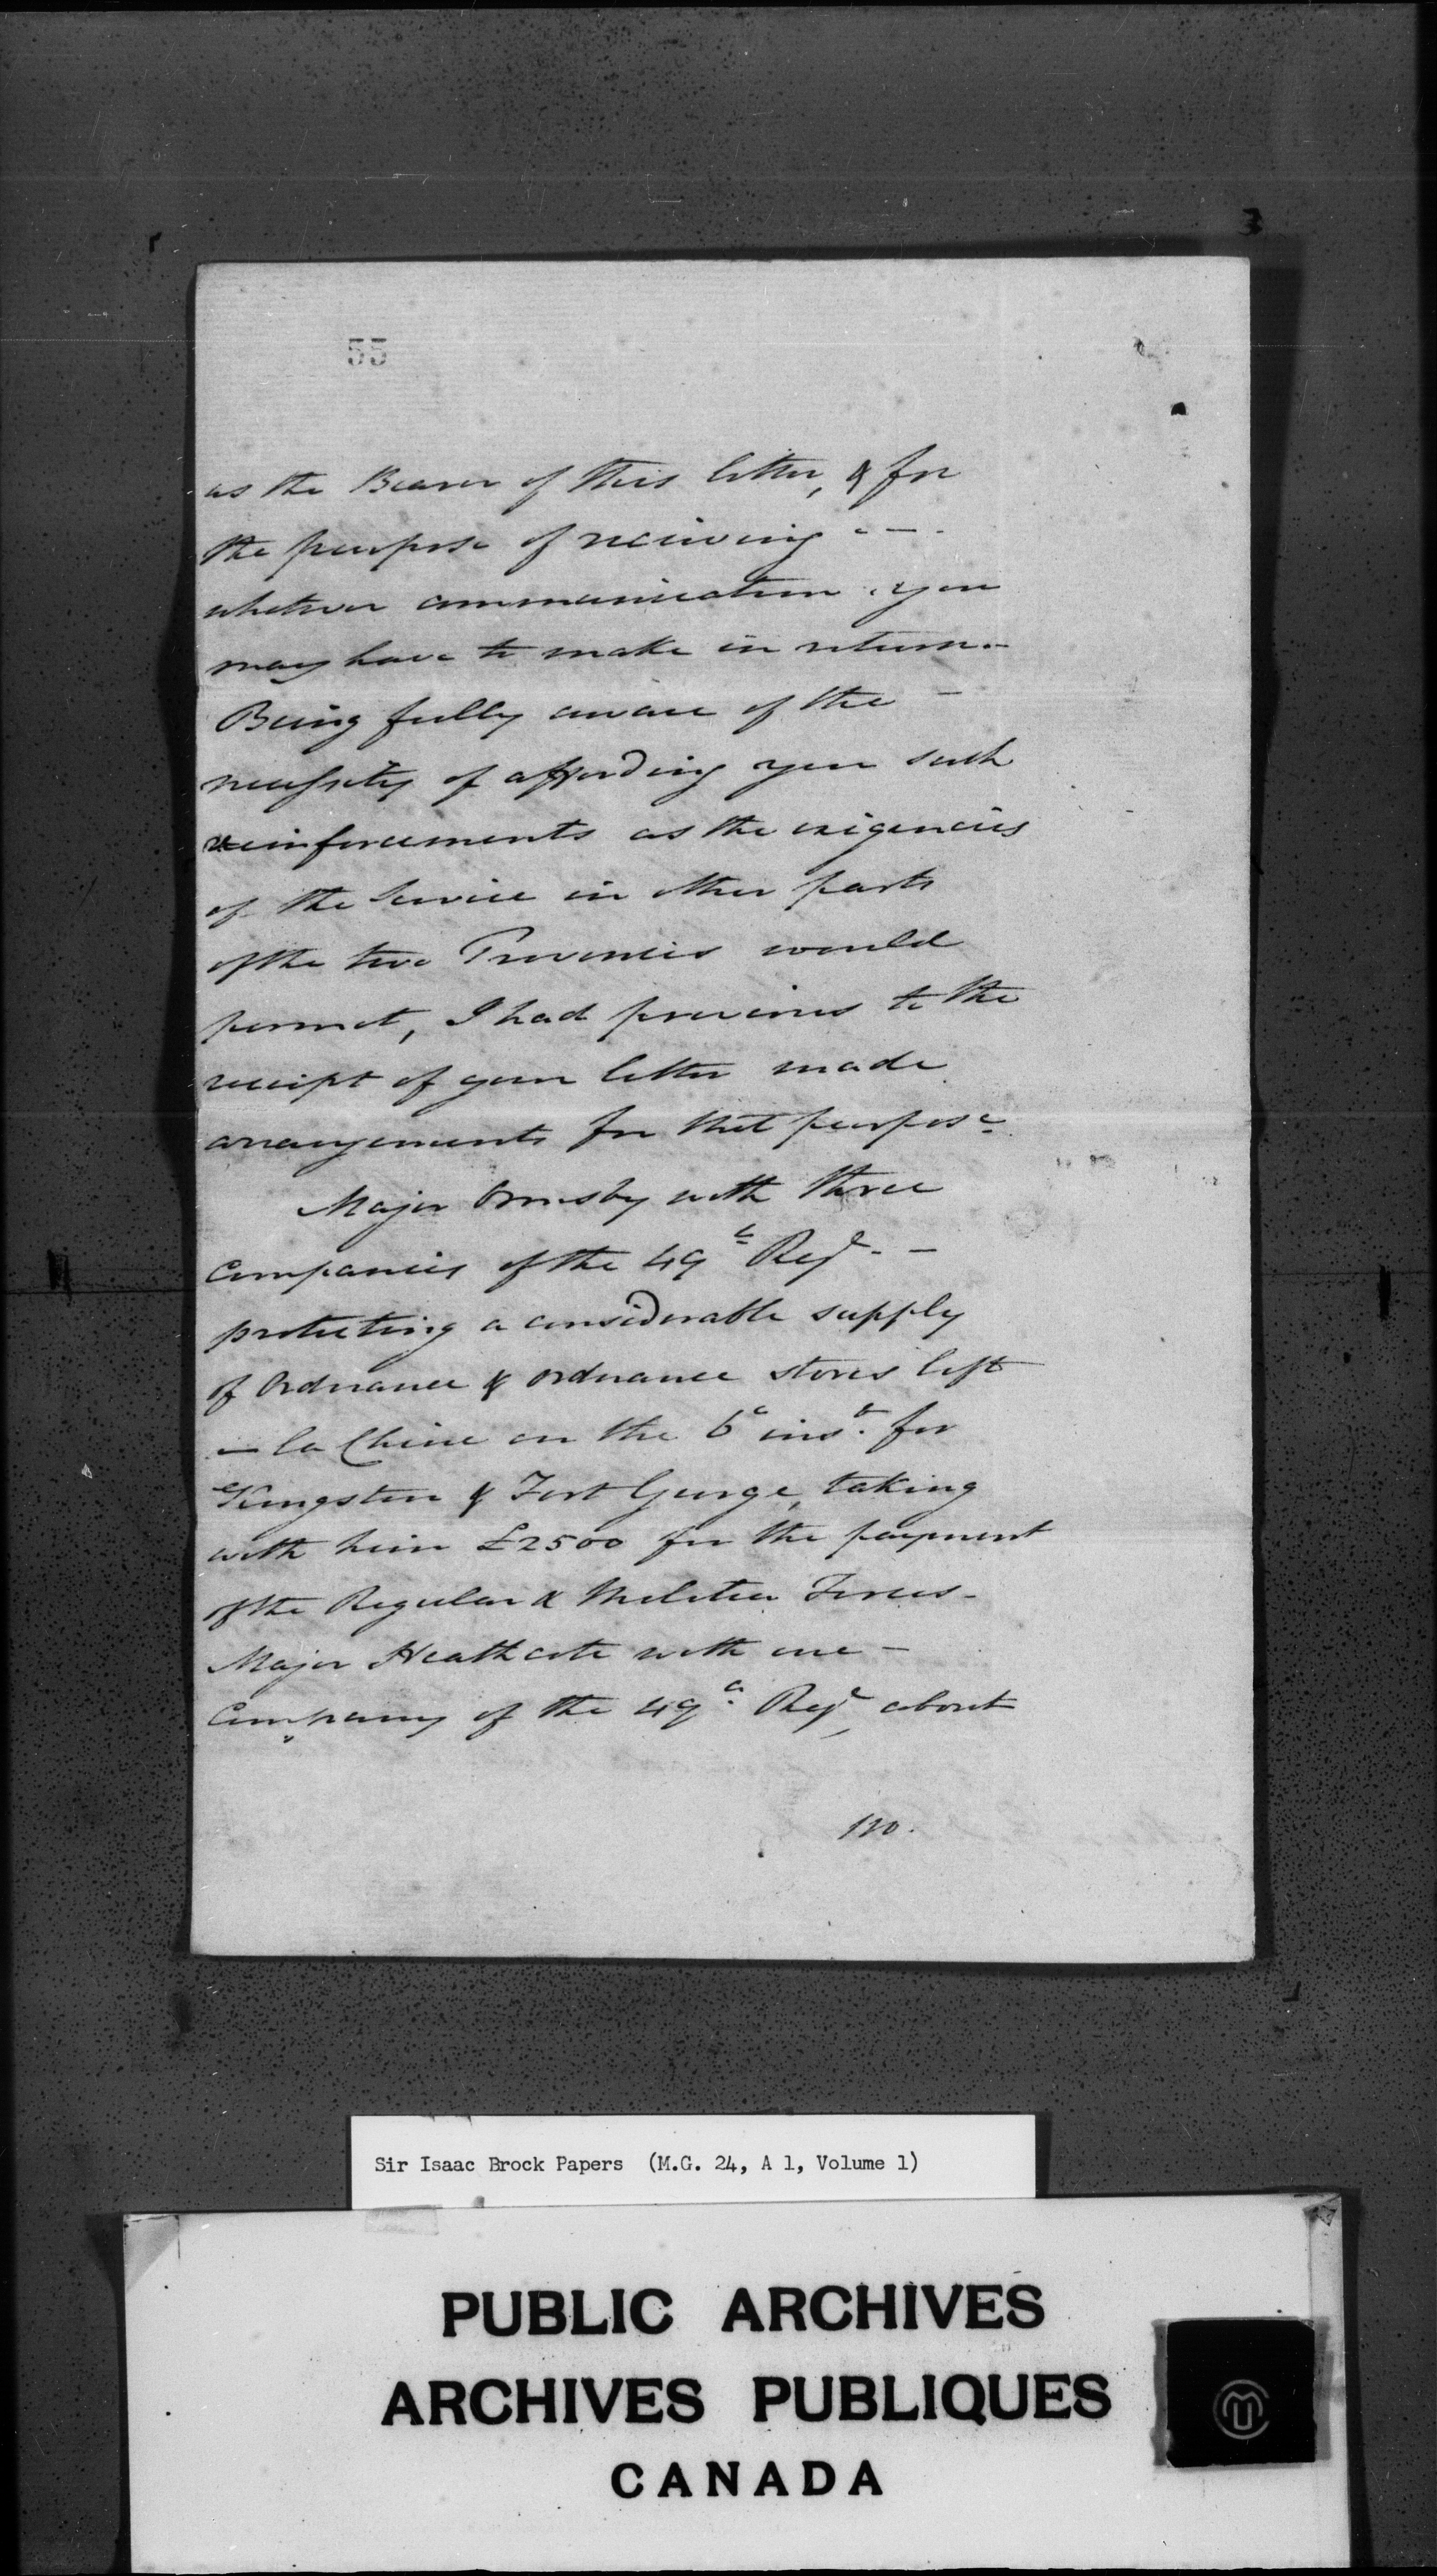 55
as the Bearer of this letter, & for
the purpose of receiving - -
whatever communication you
may have to make in return. -
Being fully aware of the -
necessity of affording you such
reinforcements as the exigencies
of the Service in other parts
of the two Provinces would
permit, I had previous to the
receipt of your letter made
arrangements for that purpose.
Major Ormsby with three
Companies of the 49th Regt. -
protecting a considerable supply
of Ordnance & ordnance stores left
- la Chine on the 6th inst. for
Kingston & Fort George, taking
with him £2500 for the payment
of the Regular & Militia Forces -
Major Heathcote with one -
Company of the 49th Regt about
110.
Sir Isaac Brock Papers (M.G. 24, A 1, Volume 1)
PUBLIC ARCHIVES
ARCHIVES PUBLIQUES
CANADA